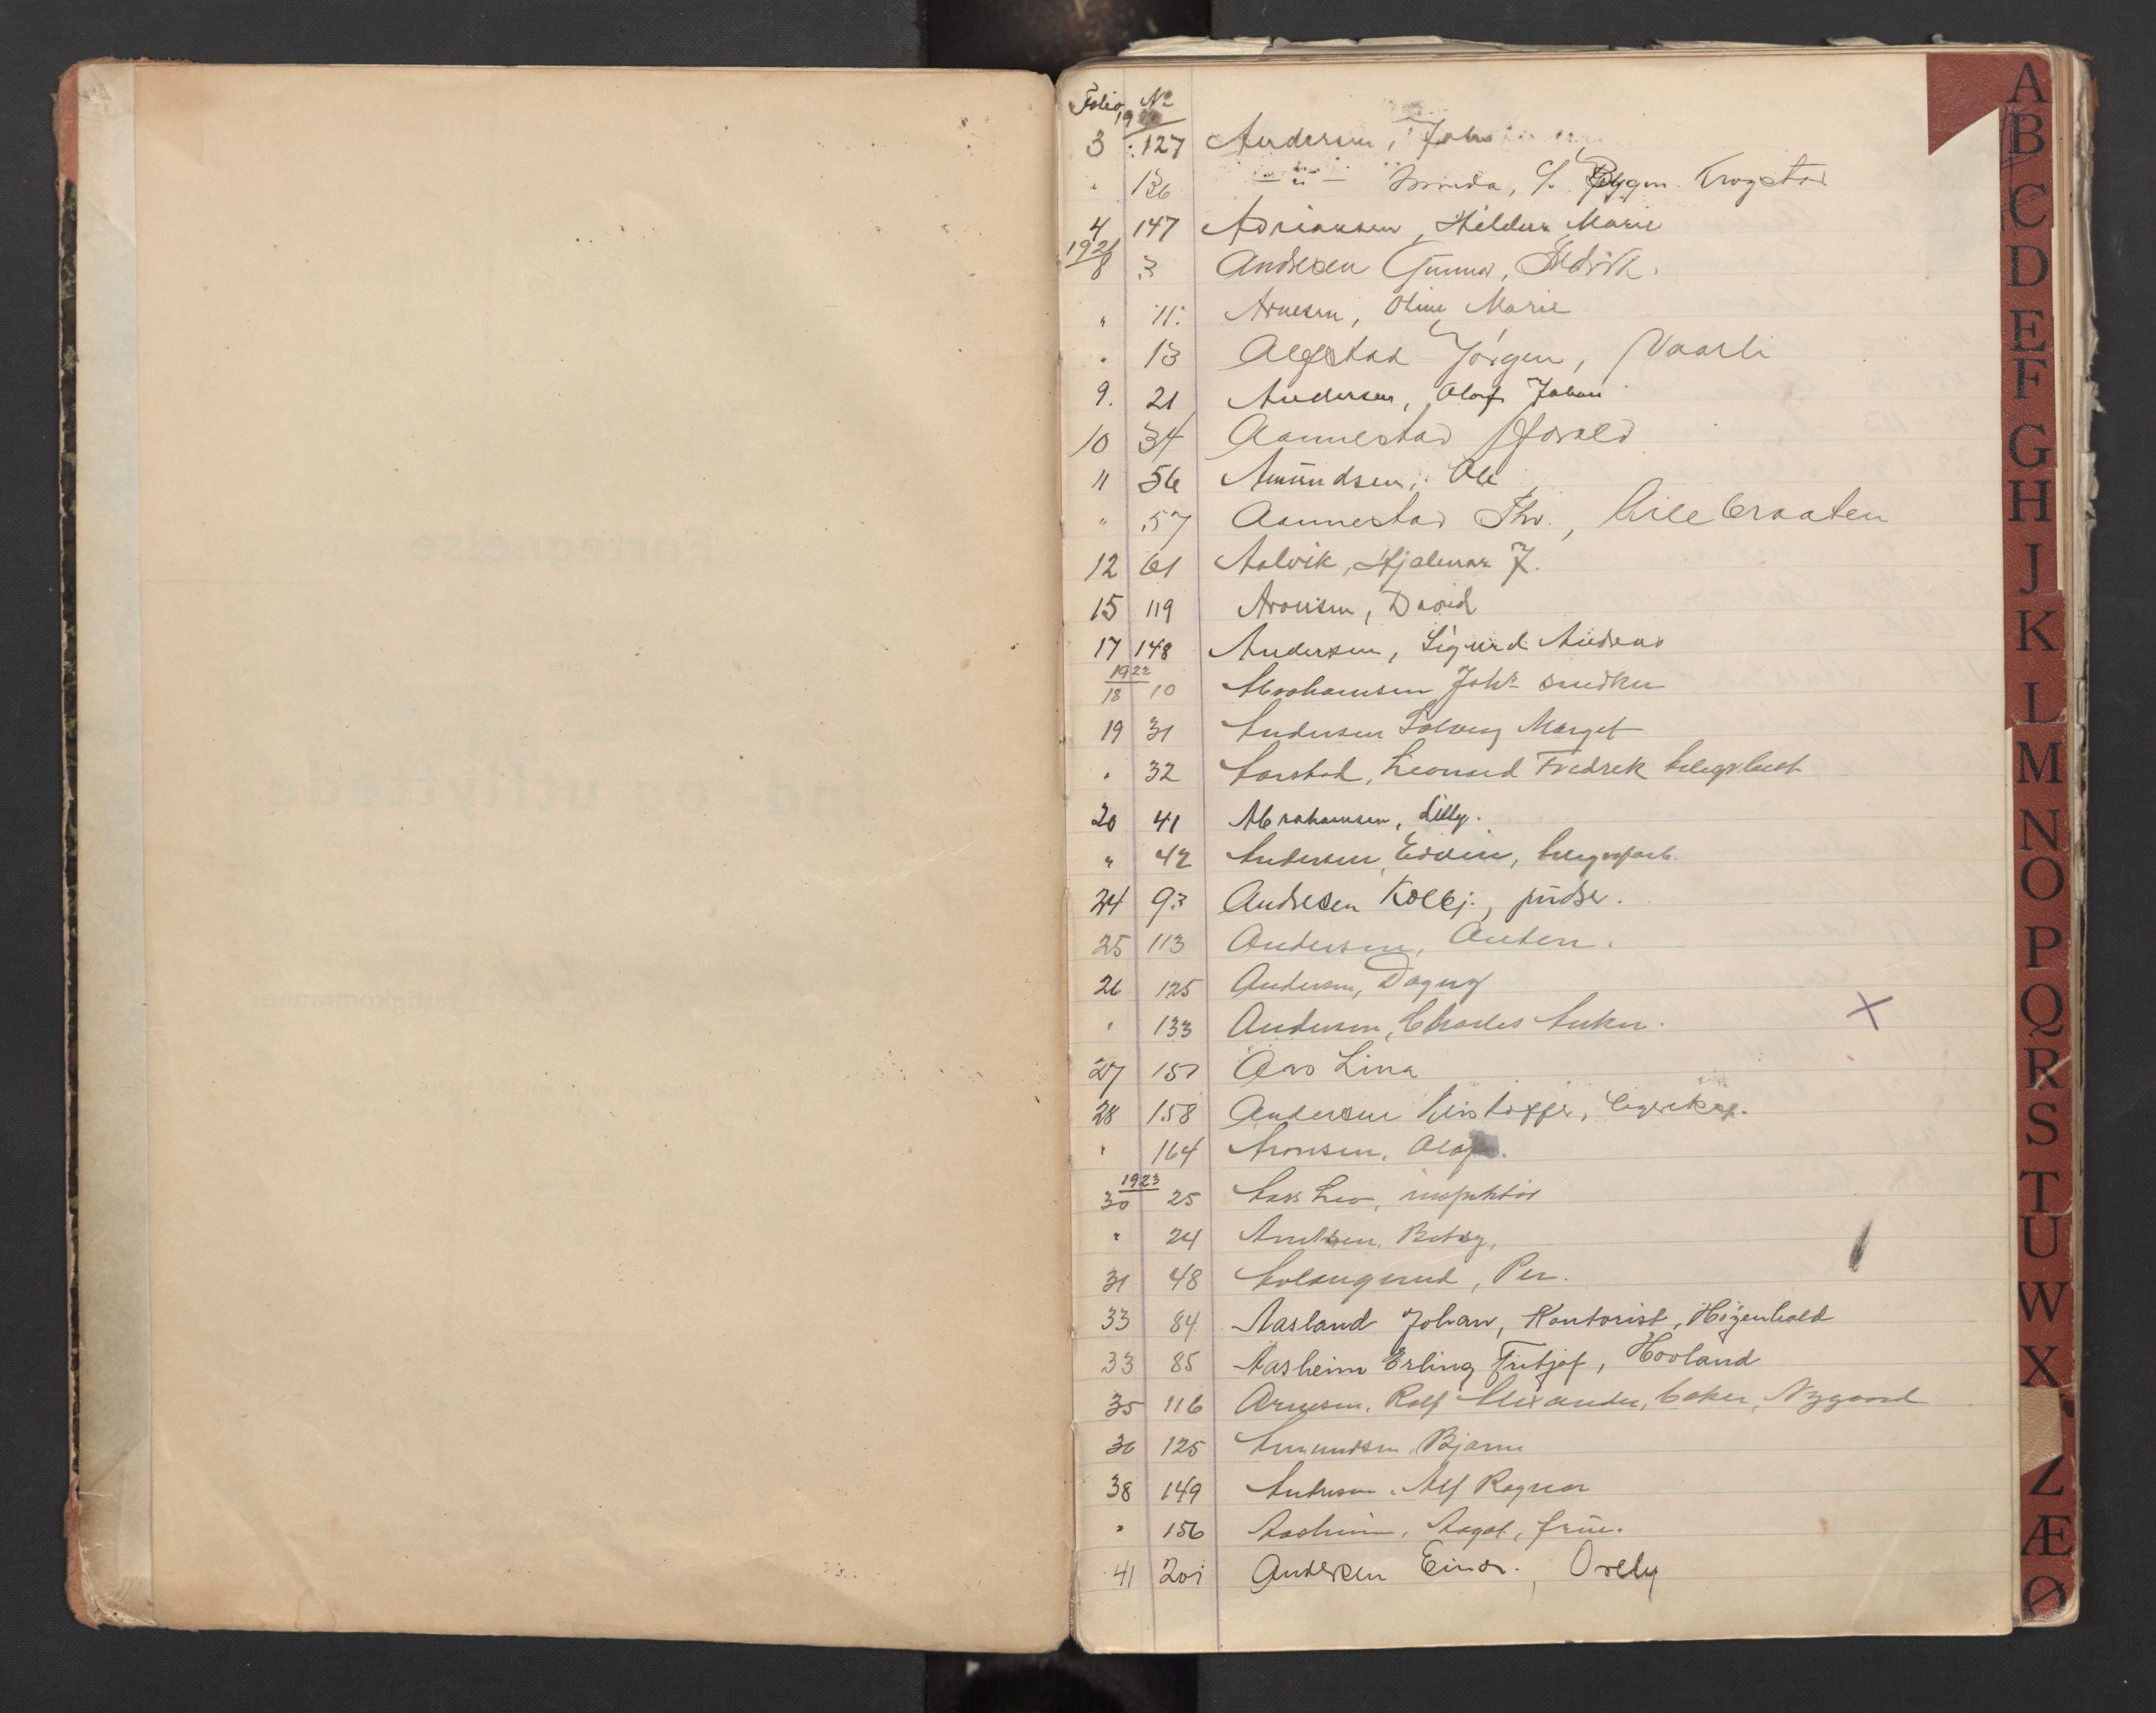 Folio No
1920
3 127 Andersen, Johs
" 136 — " —
4 147 Adriansen, Hildur Marie
1921
8 3 Andresen Gunnar, Fredrik.
" 11. Arnesen, Oline Marie
" 13 Algstad Jørgen, Vaarli
9. 21 Andersen, Olaf Johan
10 34 Aannestad Harald
11 56 Amundsen, Ole
" 57 Aannestad Thv., Lillebraaten
12 61 Aalvik, Hjalmar J.
15 119 Aronsen, David
17 148 Andersen, Sigurd Andreas
1922
18 10 Abrahamsen Johs snedker
19 31 Andersen Solveig Marget
" 32 Aarstad, Leonard Fredrek
20 41 Abrahamsen, Lilly.
" 42 Andersen, Edvin,
24 93 Andresen Kolbj., pudser.
25 113 Andersen, Anton.
26 125 Andersen, Dagny
" 133 Andersen, Charles Anker.
27 151 Aas Lina
28 158 Andersen Kristoffer,
" 164 Aronsen, Olaf.
1923
30 25 Aass Leo, inspektør
" 24 Amdsen, Betsy,
31 48 Per.
33 84 Aasland Johan, Kontorist, Høgenhald
33 85 Aasheim Erling Fritjof, Hovland
35 116 Arnesen, Rolf Alexander, baker, Nygaard
36 125 Amundsen, Bjarne
38 149 Andresen, Alf Ragnar
" 156 Aasheim, Aagot, frue.
41 201 Andersen Einar., Orely
A
B
C
D
E
F
G
H
J
K
L
M
N
O
P
Q
R
S
T
U
W
X
Z
Æ
Ø